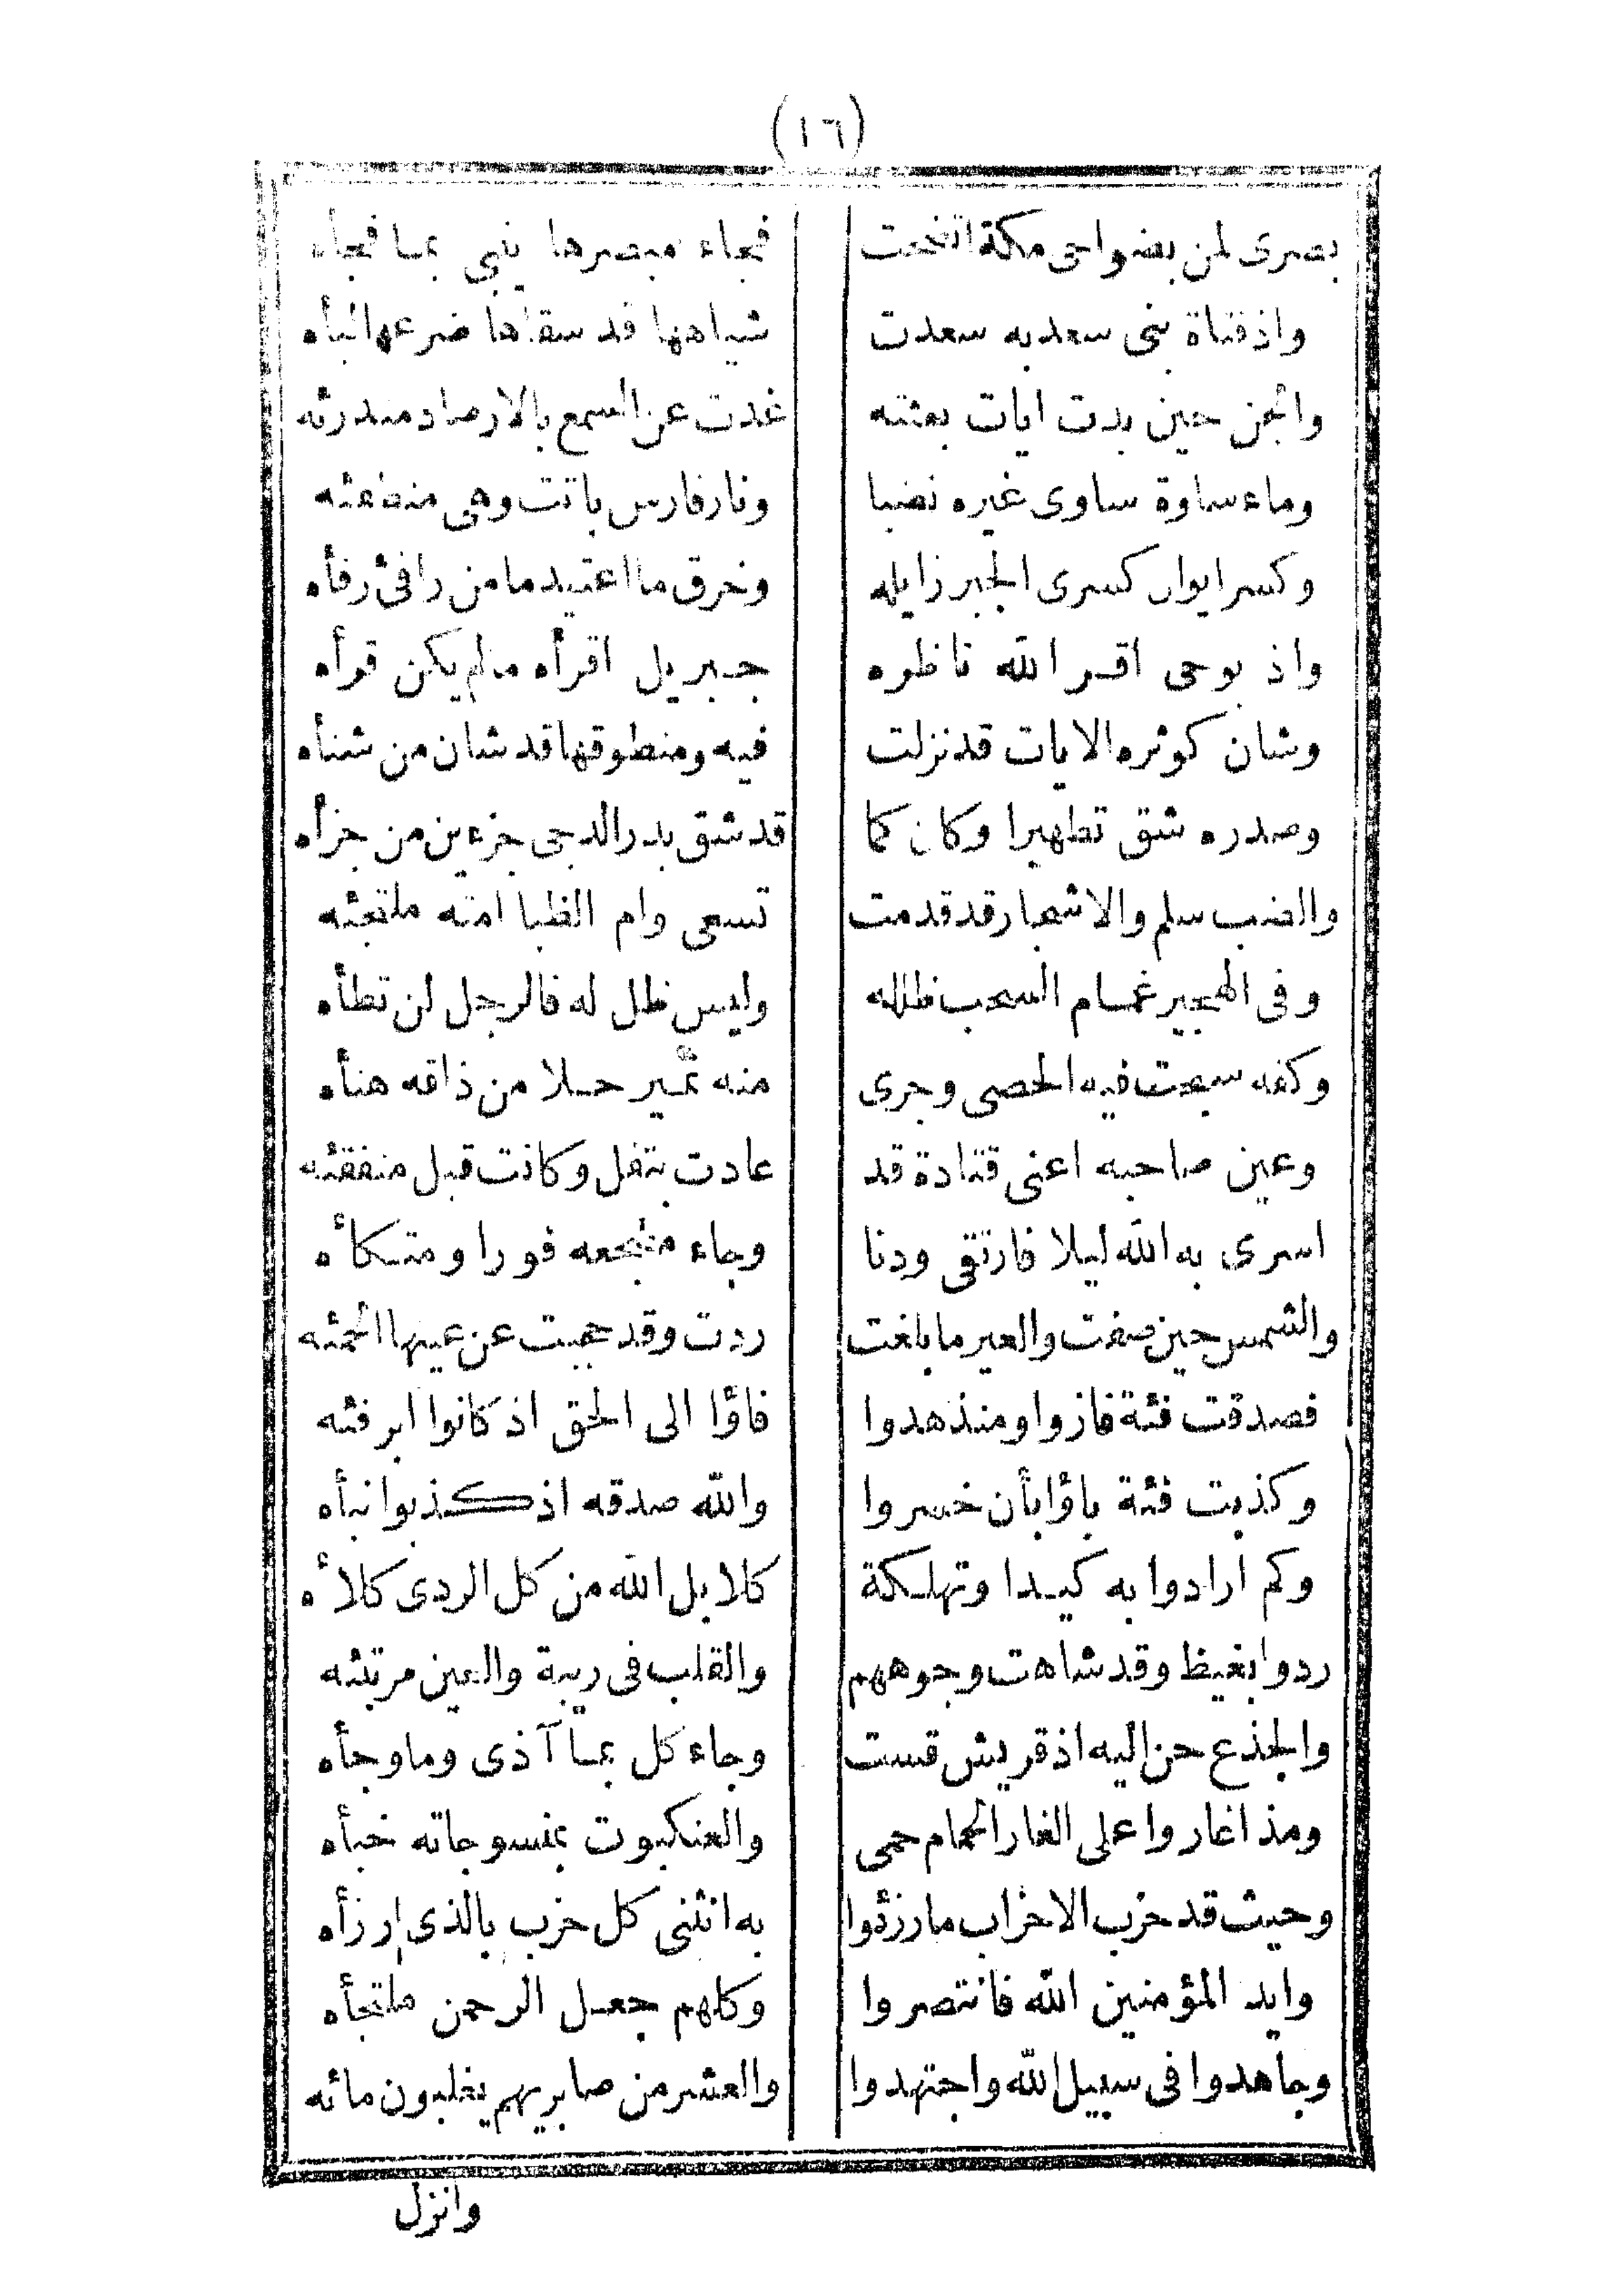 (١٦)
بصرى لمن بضواحى مكة اتضحت فجاء مبصرها ينبى بما فجأه
واذ فتاة بنى سعد به سعدت شياهها قد سقاها ضرعها لبأه
والجن حين بدت ايات بعثته غدت عن السمع بالارصاد مندرئه
وماء ساوة ساوى غيره نضبا ونار فارس باتت وهى منطفئه
وكسر ايوان كسرى الجبر زايله وخرق ما اعتيد ما من رافئ رفأه
واذ بوحى اقر الله ناظره جبريل اقرأه مالم يكن قرأه
وشان كوثره الايات قد نزلت فيه ومنطوقها قد شان من شنأه
وصدره شق تطهيرا وكان كما قد شق بدر الدجى جزءين من جزأه
والضب سلم والاشجار قد قدمت تسعى وام الظبا امته ملتجئه
وفى الهجير غمام السحب ظلله وليس ظل له فالرجل لن تطأه
وكفه سبحت فيه الحصى وجرى منه نمير حلا من ذاقه هنأه
وعين صاحبه اعنى قتادة قد عادت بتفل وكانت قبل منفقئه
اسرى به الله ليلا فارتقى ودنا وجاء مضجعه فورا ومتكأه
والشمس حين صفت والعير ما بلغت ردت وقد حجبت عن عينها الحمئه
فصدقت فئة فازوا ومنذ هدوا فاؤا الى الحق اذ كانوا ابر فئه
وكذبت فئة باؤا بأن خسروا والله صدقه اذ كذبوا نبأه
وكم ارادوا به كيدا وتهلكة كلا بل الله من كل الردى كلأه
ردوا بغيظ وقد شاهت وجوههم والقلب فى ريبة والعين مرتبئه
والجذع حن اليه اذ قريش قست وجاء كل بما آذى وما وجأه
ومذ اغاروا على الغار الحمام حمى والعنكبوت بمنسوجاته خبأه
وحيث قد حزب الاحزاب ما رزؤا به انثنى كل حزب بالذى ارزأه
وايد المؤمنين الله فانتصروا وكلهم جعل الرحمن ملتجأه
وجاهدوا فى سبيل الله واجتهدوا والعشر من صابريهم يغلبون مائه
وانزل